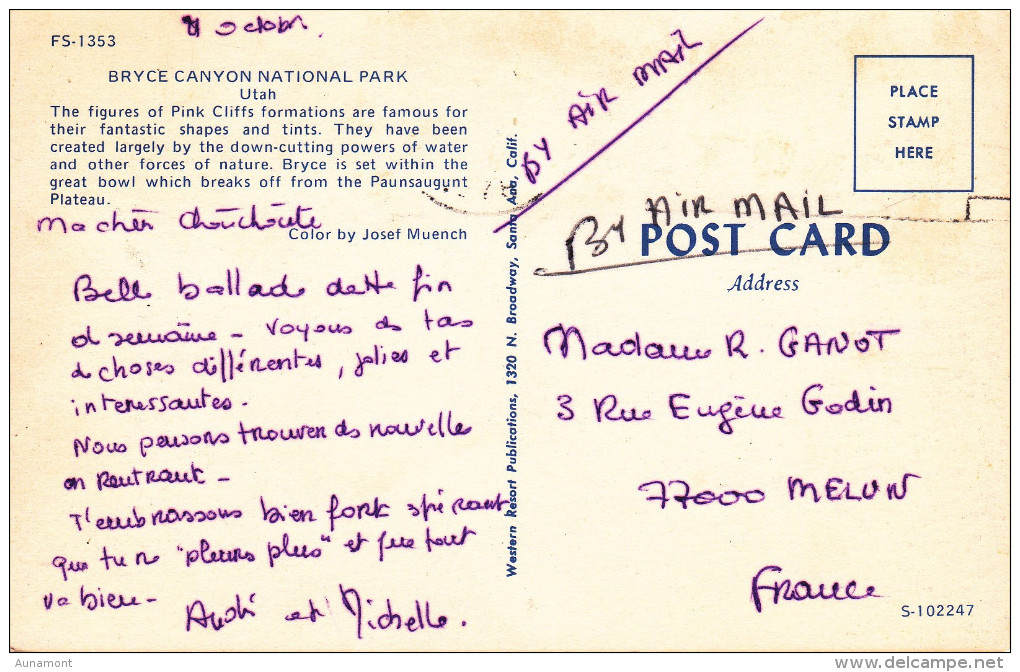 8 Octobre.
FS-1353
BRYCE CANYON NATIONAL PARK
Utah
The figures of Pink Cliffs formations are famous for
their fantastic shapes and tints. They have been
created largely by the down-cutting powers of water
and other forces of nature. Bryce is set within the
great bowl which breaks off from the Paunsaugunt
Plateau.
Ma chère Chouchoute
Color by Josef Muench
Belle ballade cette fin
de semaine - Voyons des tas
de choses différentes, jolies et
interessantes.
Nous pensons trouver des nouvelles
en rentrant -
T'embrassons bien fort espérant
que tu ne "pleures plus" et que tout
va bien -
André et Michelle.
Western Resort Publications, 1320 N. Broadway, Santa Ana, Calif.
BY AIR MAIL
PLACE
STAMP
HERE
BY AIR MAIL
POST CARD
Address
Madame R. GANOT
3 Rue Eugène Godin
77000 MELUN
France
S-102247
Aunamont
delcampe.net